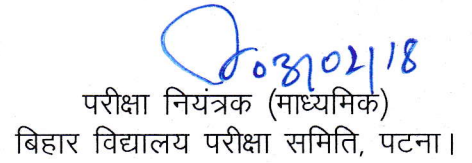 03/02/18
परीक्षा नियंत्रक (माध्यमिक)
बिहार विद्यालय परीक्षा समिति, पटना।